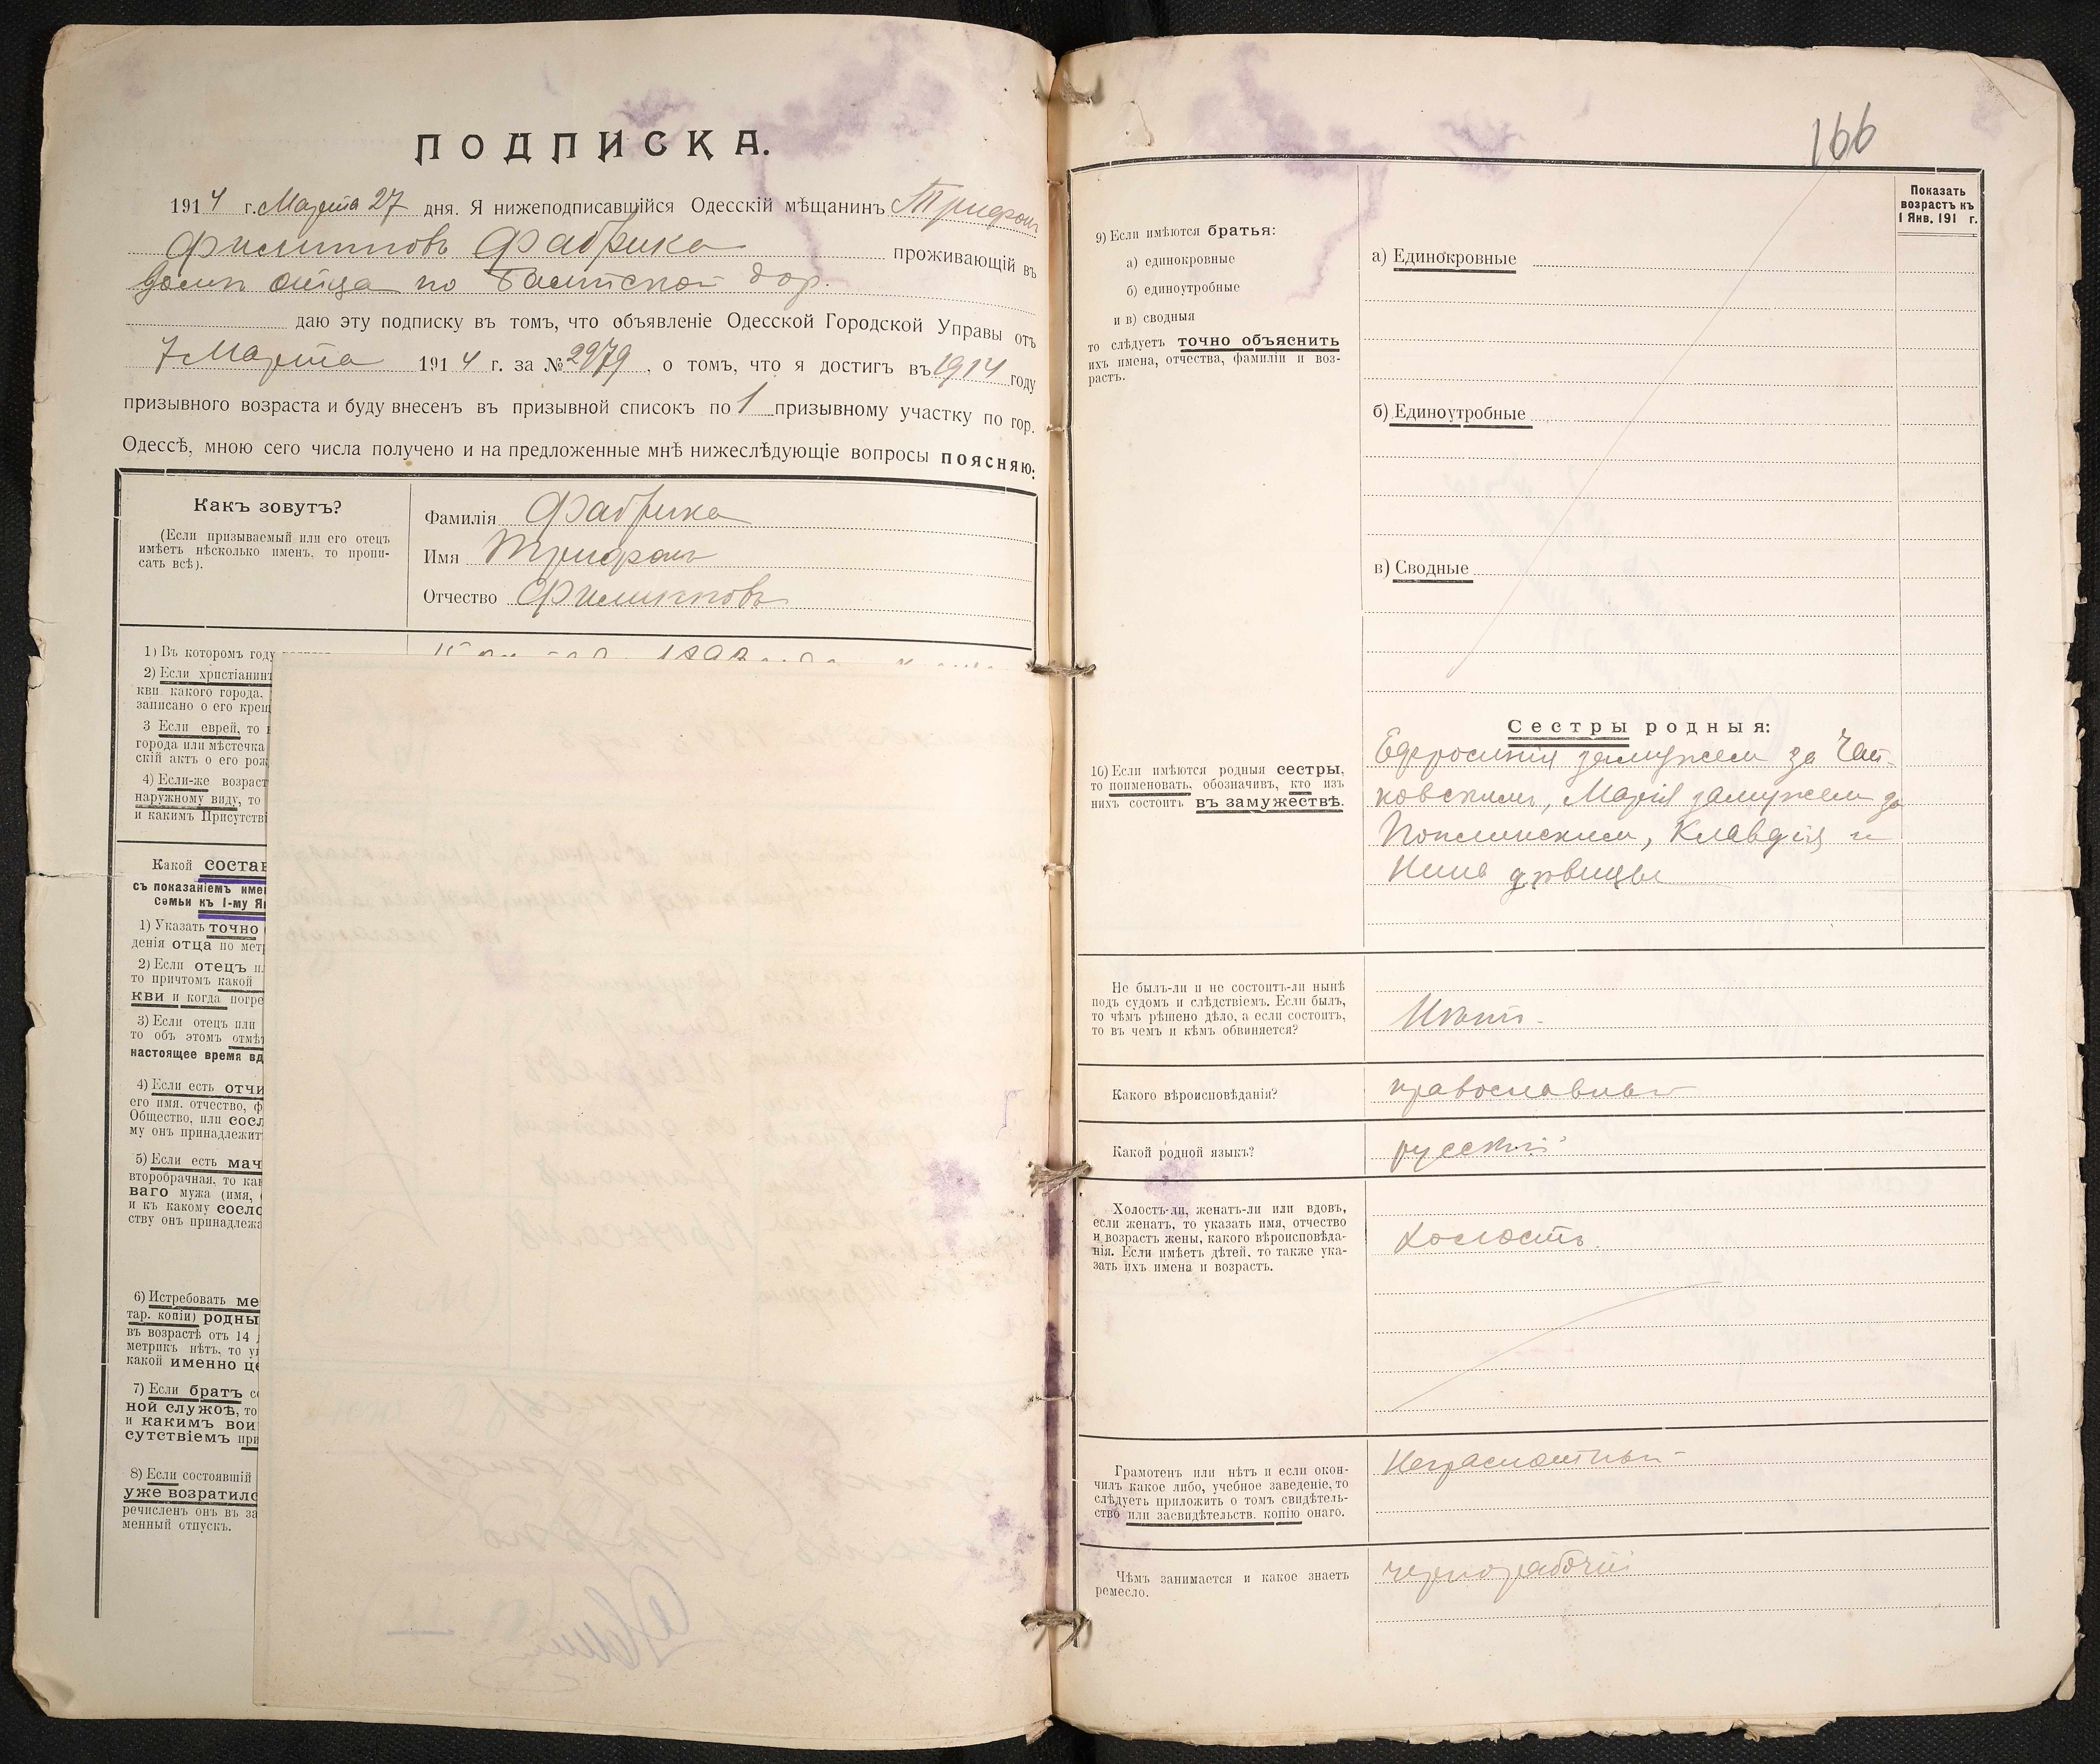 ПОДПИСКА.
1914 г. Марта 27 дня. Я нижеподписавшійся Одесскій мѣщанинъ Трифонъ
Филипповъ Фабрика проживающій въ
домѣ отца по Балтской дор.
даю эту подписку въ томъ, что объявленіе Одесской Городской Управы отъ
7 Марта 1914 г. за № 2979, о томъ, что я достигъ въ 1914 году
призывного возраста и буду внесенъ въ призывной списокъ по 1 призывному участку по гор.
Одессѣ, мною сего числа получено и на предложенные мнѣ нижеслѣдующіе вопросы поясняю:
Какъ зовутъ?
(Если призываемый или его отецъ
имѣетъ нѣсколько именъ, то пропи-
сать всѣ).
Фамилія Фабрика
Имя Трифонъ
Отчество Филипповъ
1) Въ которомъ году
2) Если христіанинъ
кви какого города,
записано о его крещ
3 Если еврей, то
города или мѣстечка
скій актъ о его рож
4) Если-же возраст
наружному виду, то
и какимъ Присутстві
Какой состав
съ показаніемъ имен
семьи къ 1-му Я
1) Указать точно
денія отца по мет
2) Если отецъ и
то причтомъ какой
кви и когда погре
3) Если отецъ или
то объ этомъ отмѣ
настоящее время вд
4) Если есть отчи
его имя, отчество, ф
Общество, или сосл
му онъ принадлежит
5) Если есть мач
второбрачная, то как
ваго мужа (имя,
и къ какому сосло
ству онъ принадлежа
6) Истребовать ме
тар. копіи) родны
въ возрастѣ отъ 14
метрикъ нѣтъ, то у
какой именно це
7) Если братъ с
ной службѣ, то
и какимъ вои
сутствіемъ при
8) Если состоявшій
уже возратилс
речисленъ онъ въ за
менный отпускъ.
166
Показать
возрастъ къ
1 Янв. 191 г.
9) Если имѣются братья:
а) единокровные
б) единоутробные
и в) сводныя
то слѣдуетъ точно объяснить
ихъ имена, отчества, фамиліи и воз-
растъ.
а) Единокровные
б) Единоутробные
в) Сводные
Сестры родныя:
10) Если имѣются родныя сестры,
то поименовать, обозначивъ, кто изъ
нихъ состоитъ въ замужествѣ.
Ефросинія замужемъ за Чай-
ковскимъ, Марія замужемъ за
Клавдія и
Нина дѣвицы
Не былъ-ли и не состоитъ-ли нынѣ
подъ судомъ и слѣдствіемъ. Если былъ,
то чѣмъ рѣшено дѣло, а если состоитъ,
то въ чемъ и кѣмъ обвиняется?
Нѣтъ.
Какого вѣроисповѣданія?
православный
Какой родной языкъ?
русскій
Холостъ-ли, женатъ-ли или вдовъ,
если женатъ, то указать имя, отчество
и возрастъ жены, какого вѣроисповѣда-
нія. Если имѣетъ дѣтей, то также ука-
зать ихъ имена и возрастъ.
холостъ.
Грамотенъ или нѣтъ и если окон-
чилъ какое либо, учебное заведеніе, то
слѣдуетъ приложить о томъ свидѣтель-
ство или засвидѣтельств. копію онаго.
Неграмотный
Чѣмъ занимается и какое знаетъ
ремесло.
чернорабочій